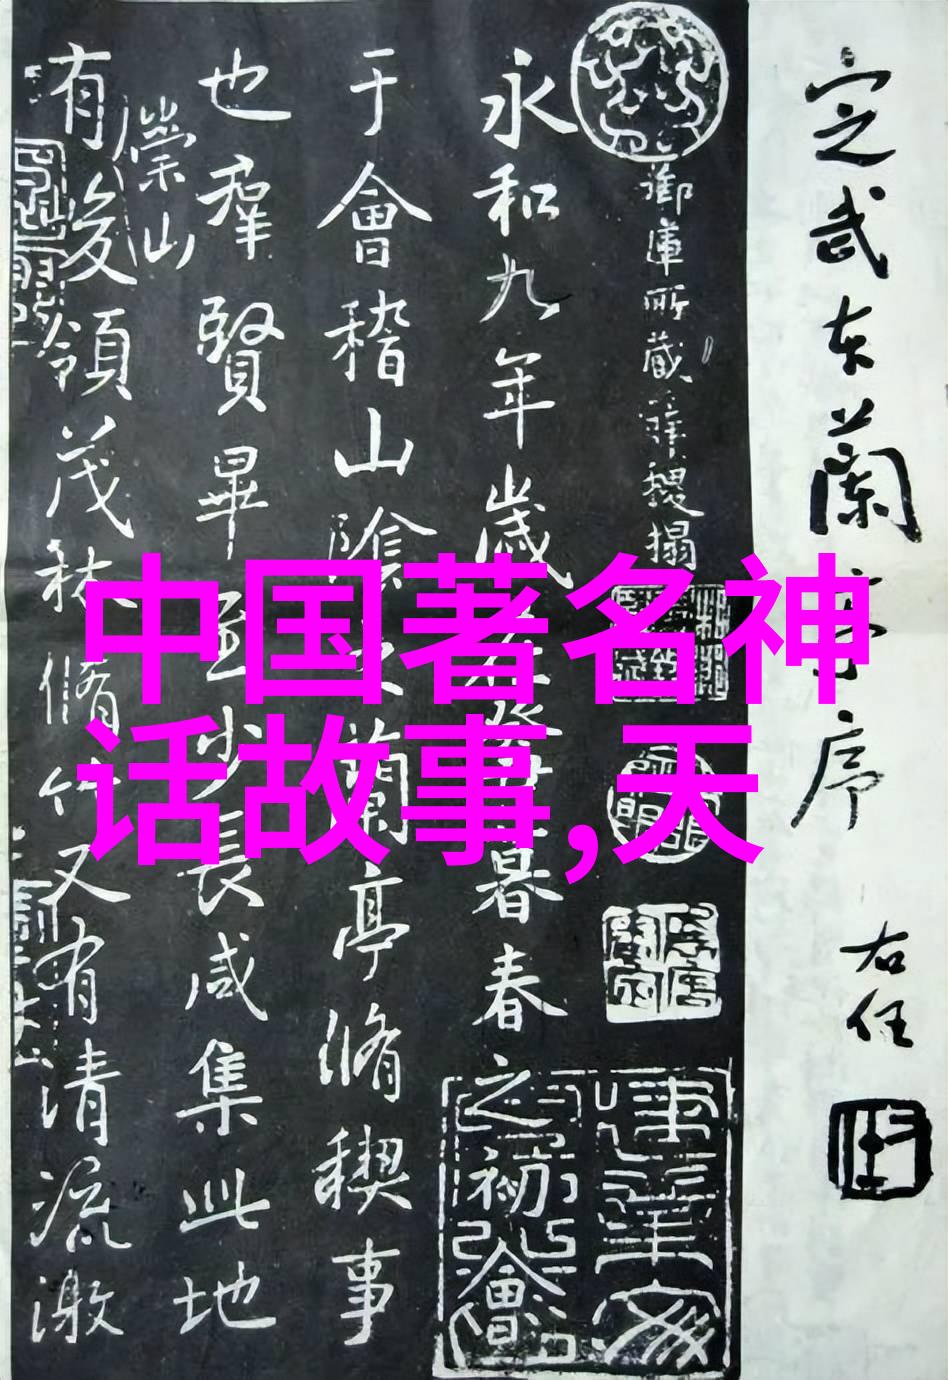 中国著名神
话故事,天
定武本蘭亭序
右任
御府所藏
永和九年歲在癸丑暮春之初會
于會稽山陰之蘭亭脩稧事
也羣賢畢至少長咸集此地
有崇山峻領茂林脩竹又有清流激